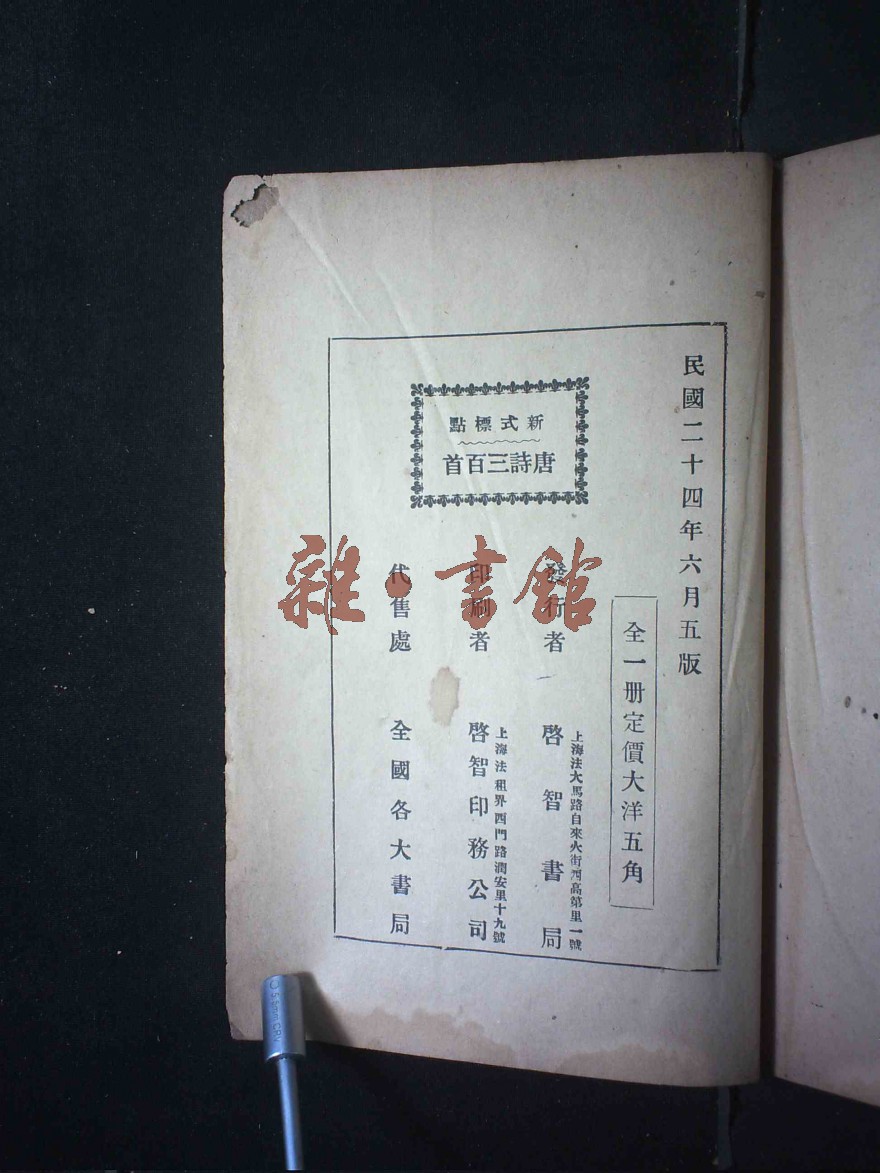 民國二十四年六月五版
全一册定價大洋五角
新式標點
唐詩三百首
發行者
上海法大馬路自來火街河高第里一號
啓智書局
印刷者
上海法租界西門路潤安里十九號
啓智印務公司
代售處
全國各大書局
雜·書館